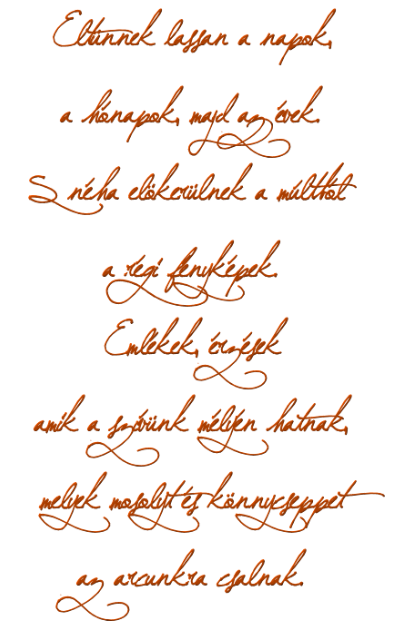 Eltűnnek lassan a napok,
a hónapok, majd az évek.
S néha előkerülnek a múltból
a régi fényképek.
Emlékek, érzések
amik a szívünk mélyén hatnak,
melyek mosolyt és könnycseppet
az arcunkra csalnak.